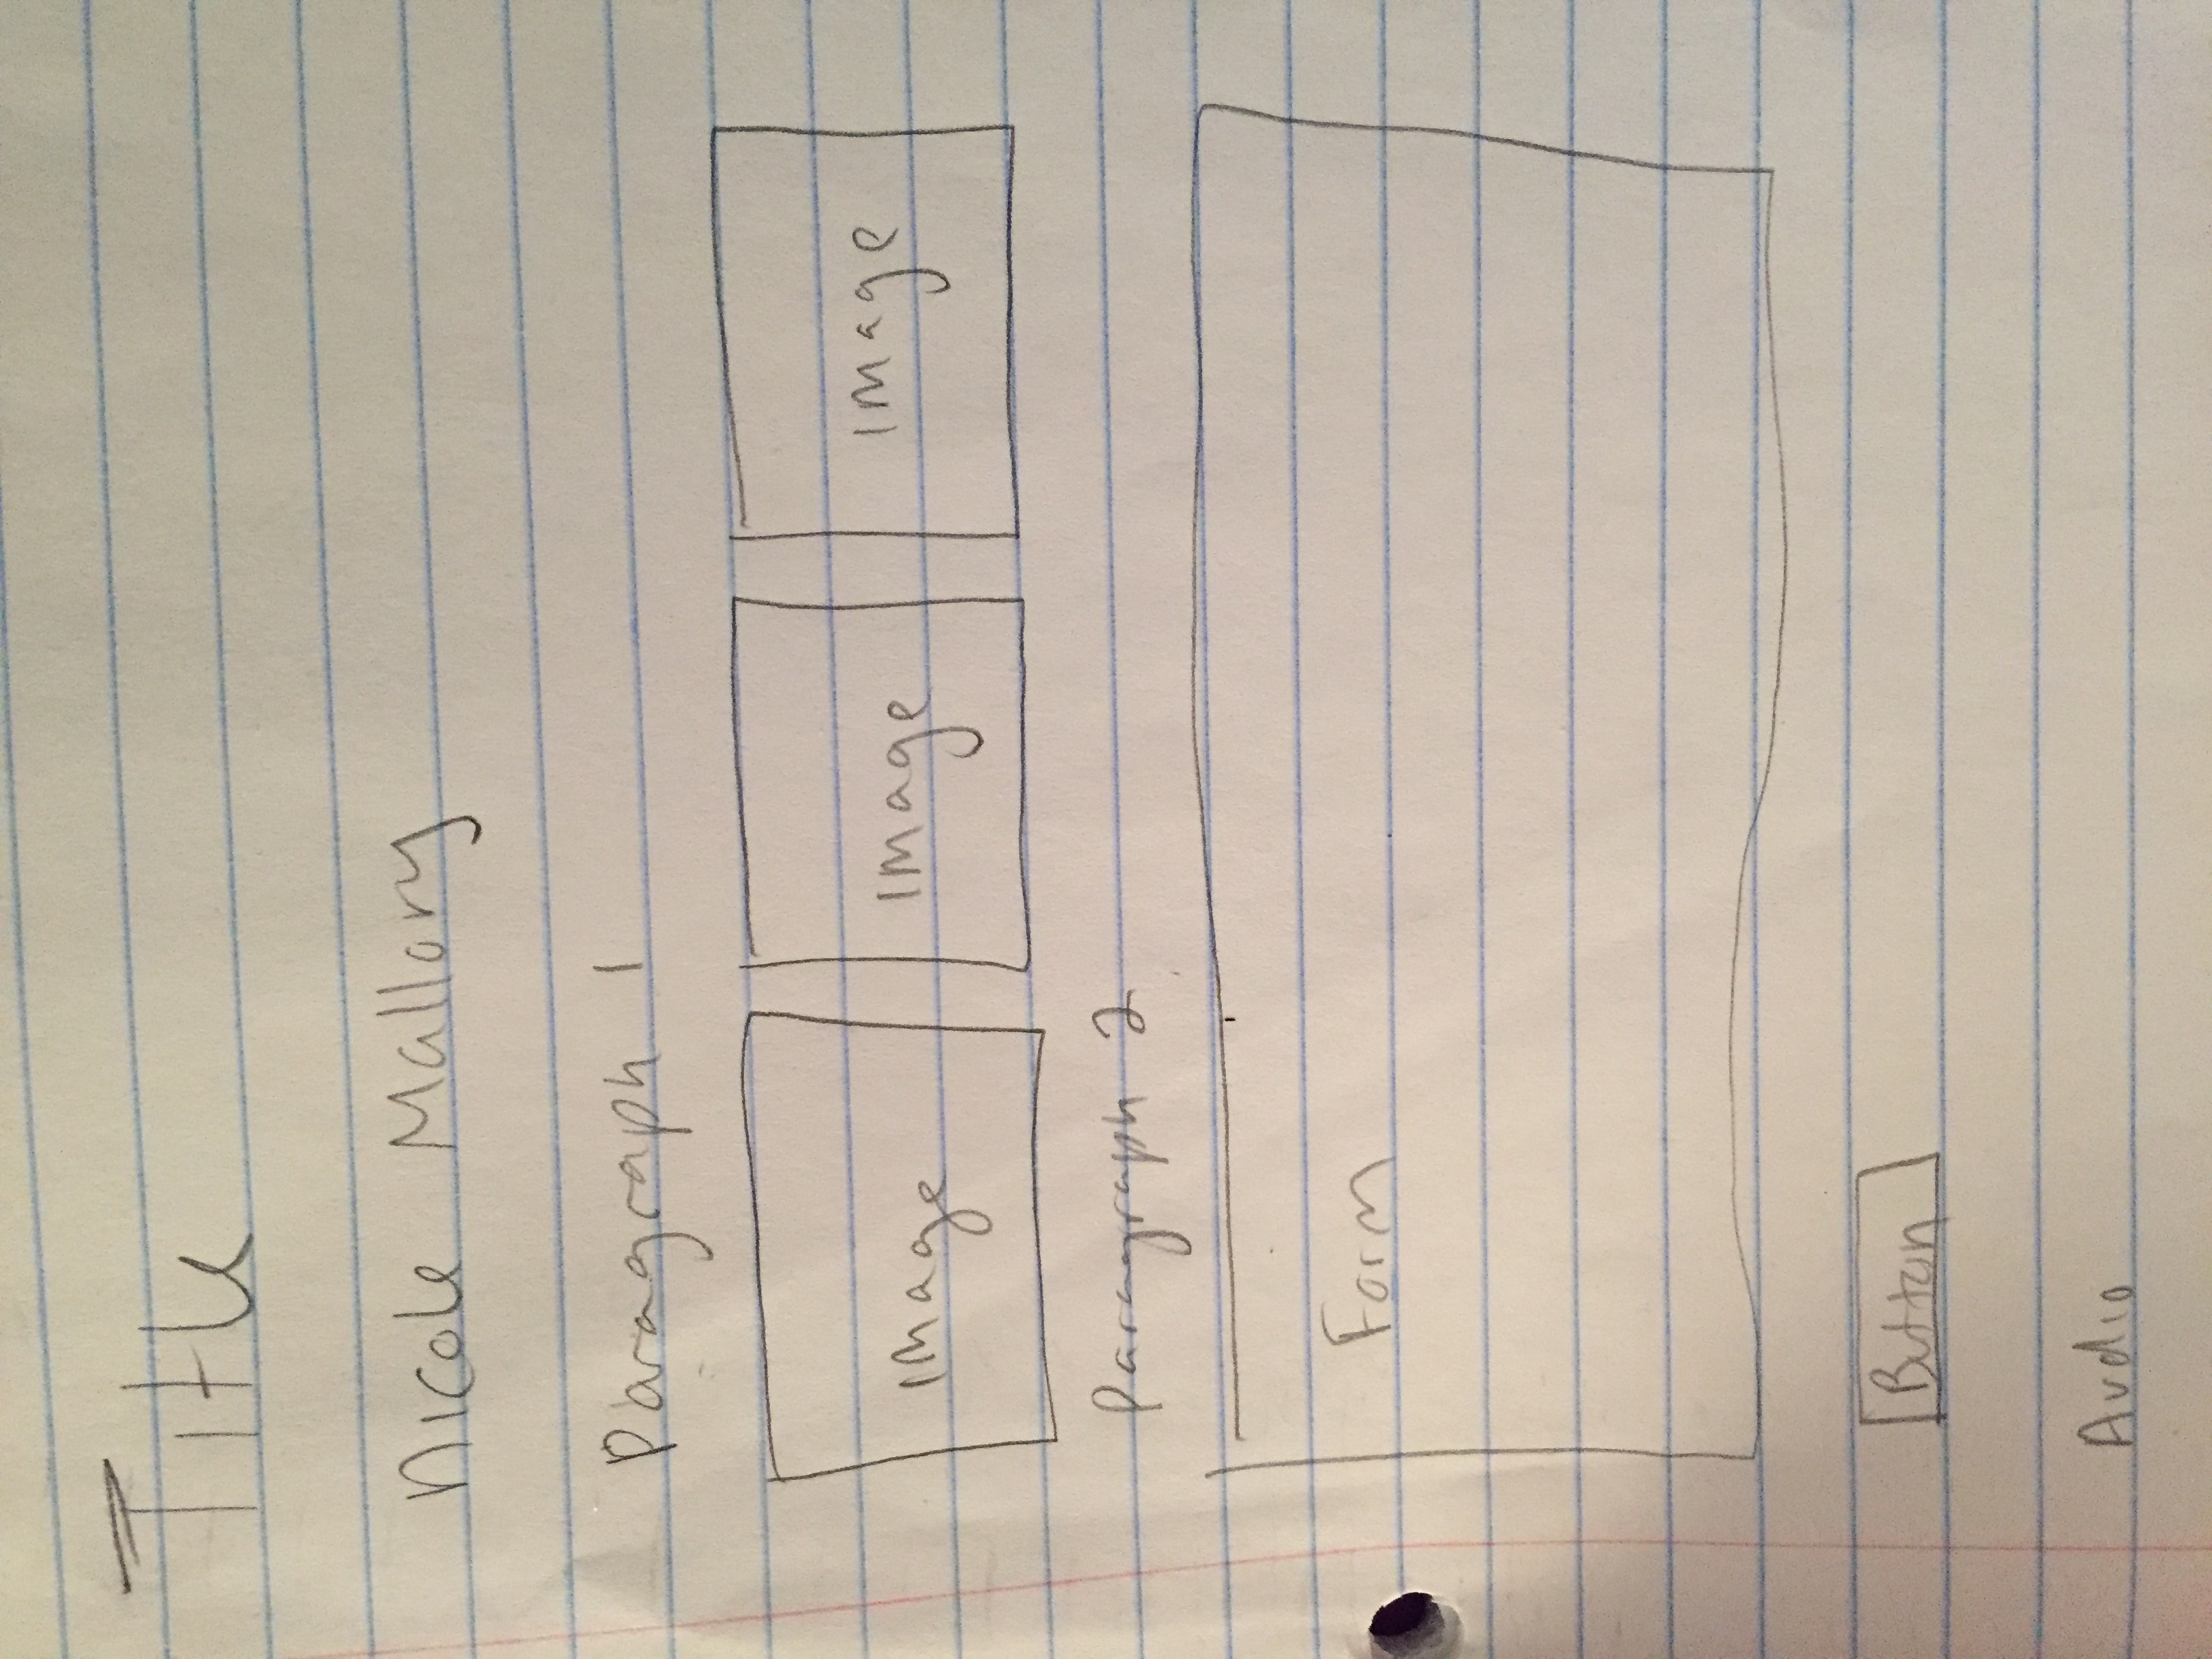 Title
Nicole Mallory
Paragraph 1
Image Image Image
Paragraph 2
Form
Button
Audio